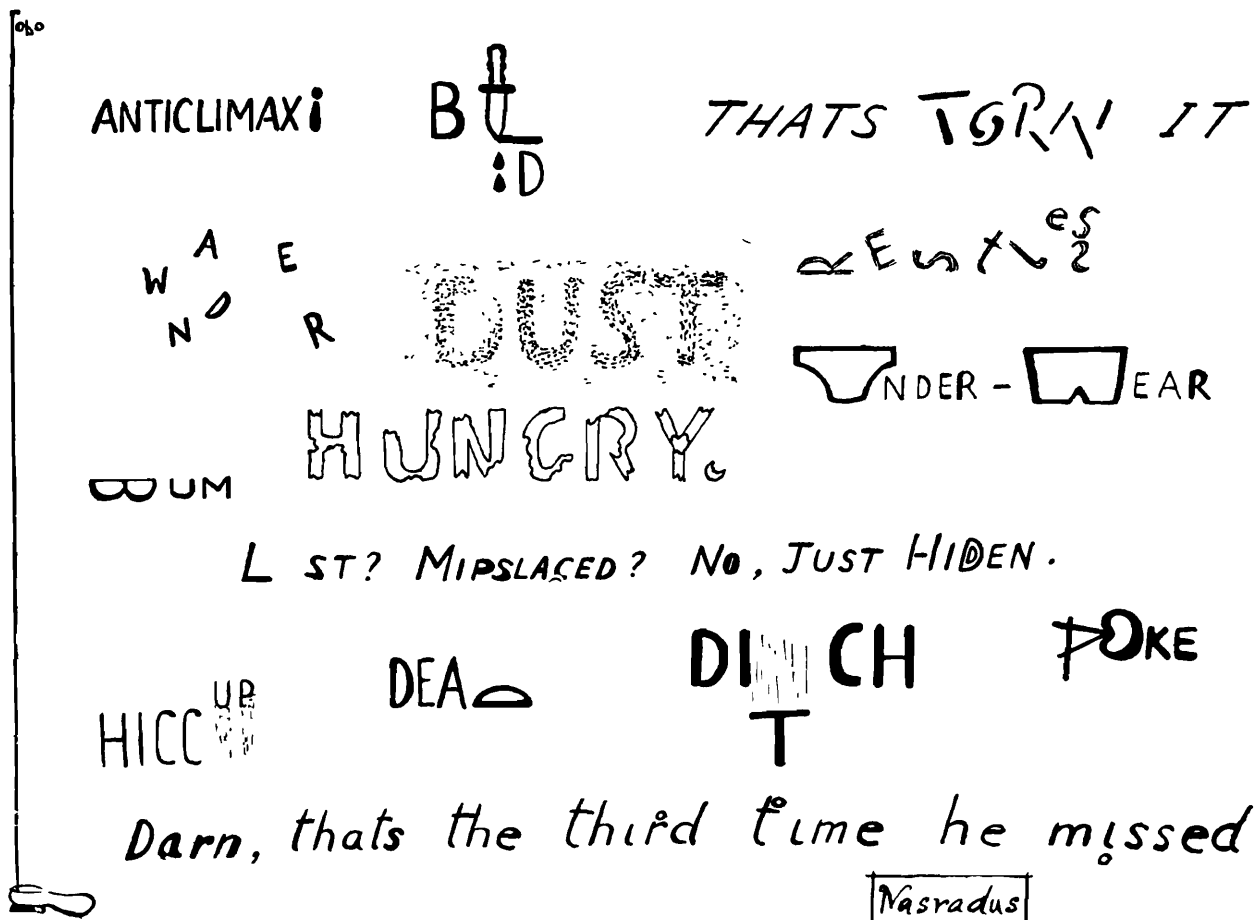 ANTICLIMAXi
BLD
THATS TORN IT
WANDER
DUST
RESTLES
es
UNDER - WEAR
HUNGRY.
BUM
L ST? MIPSLACED? NO, JUST HIDEN.
HICCUP
DEAD
DITCH
POKE
Darn, thats the third time he missed
Nasradus